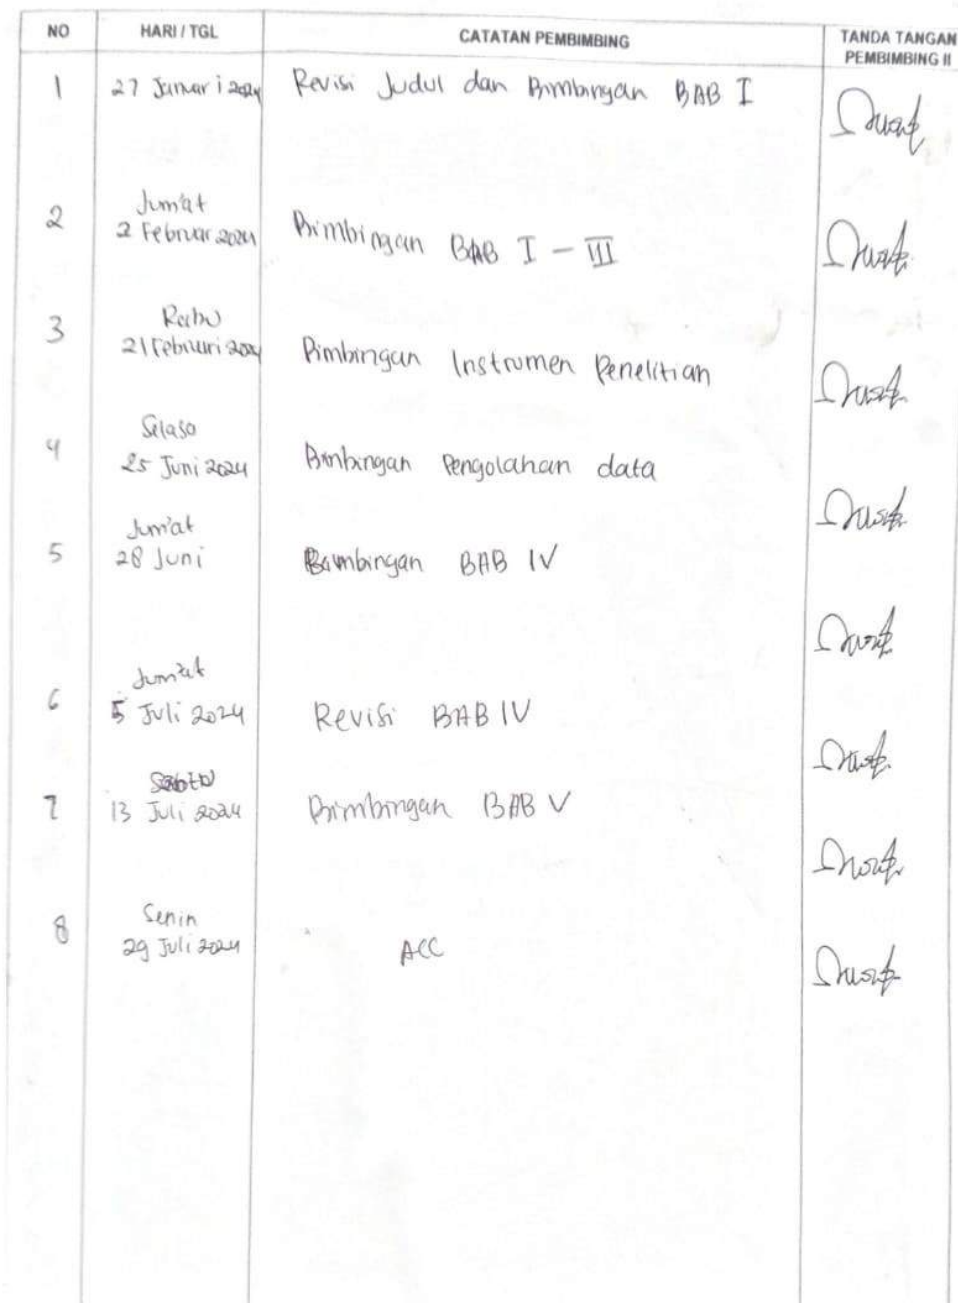 NO HARI / TGL CATATAN PEMBIMBING TANDA TANGAN PEMBIMBING II
1 27 Januari 2024 Revisi Judul dan Bimbingan BAB I
Jum'at
2 2 Februar 2024 Bimbingan BAB I - III
Rabu
3 21 Februari 2024 Bimbingan Instrumen Penelitian
Selasa
4 25 Juni 2024 Bimbingan Pengolahan data
Jum'at
5 28 Juni Bimbingan BAB IV
Jum'at
6 5 Juli 2024 Revisi BAB IV
Sabtu
7 13 Juli 2024 Bimbingan BAB V
Senin
8 29 Juli 2024 ACC